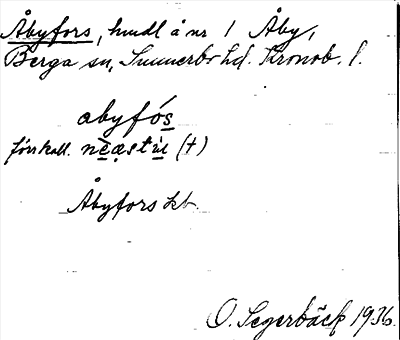 Åbyfors, hmdl å nr 1 Åby,
Berga sn, Sunnerbo hd. Kronob. l.
abyfós
förr kall. (†)
Åbyfors kb.
O. Segerbäck 1936.